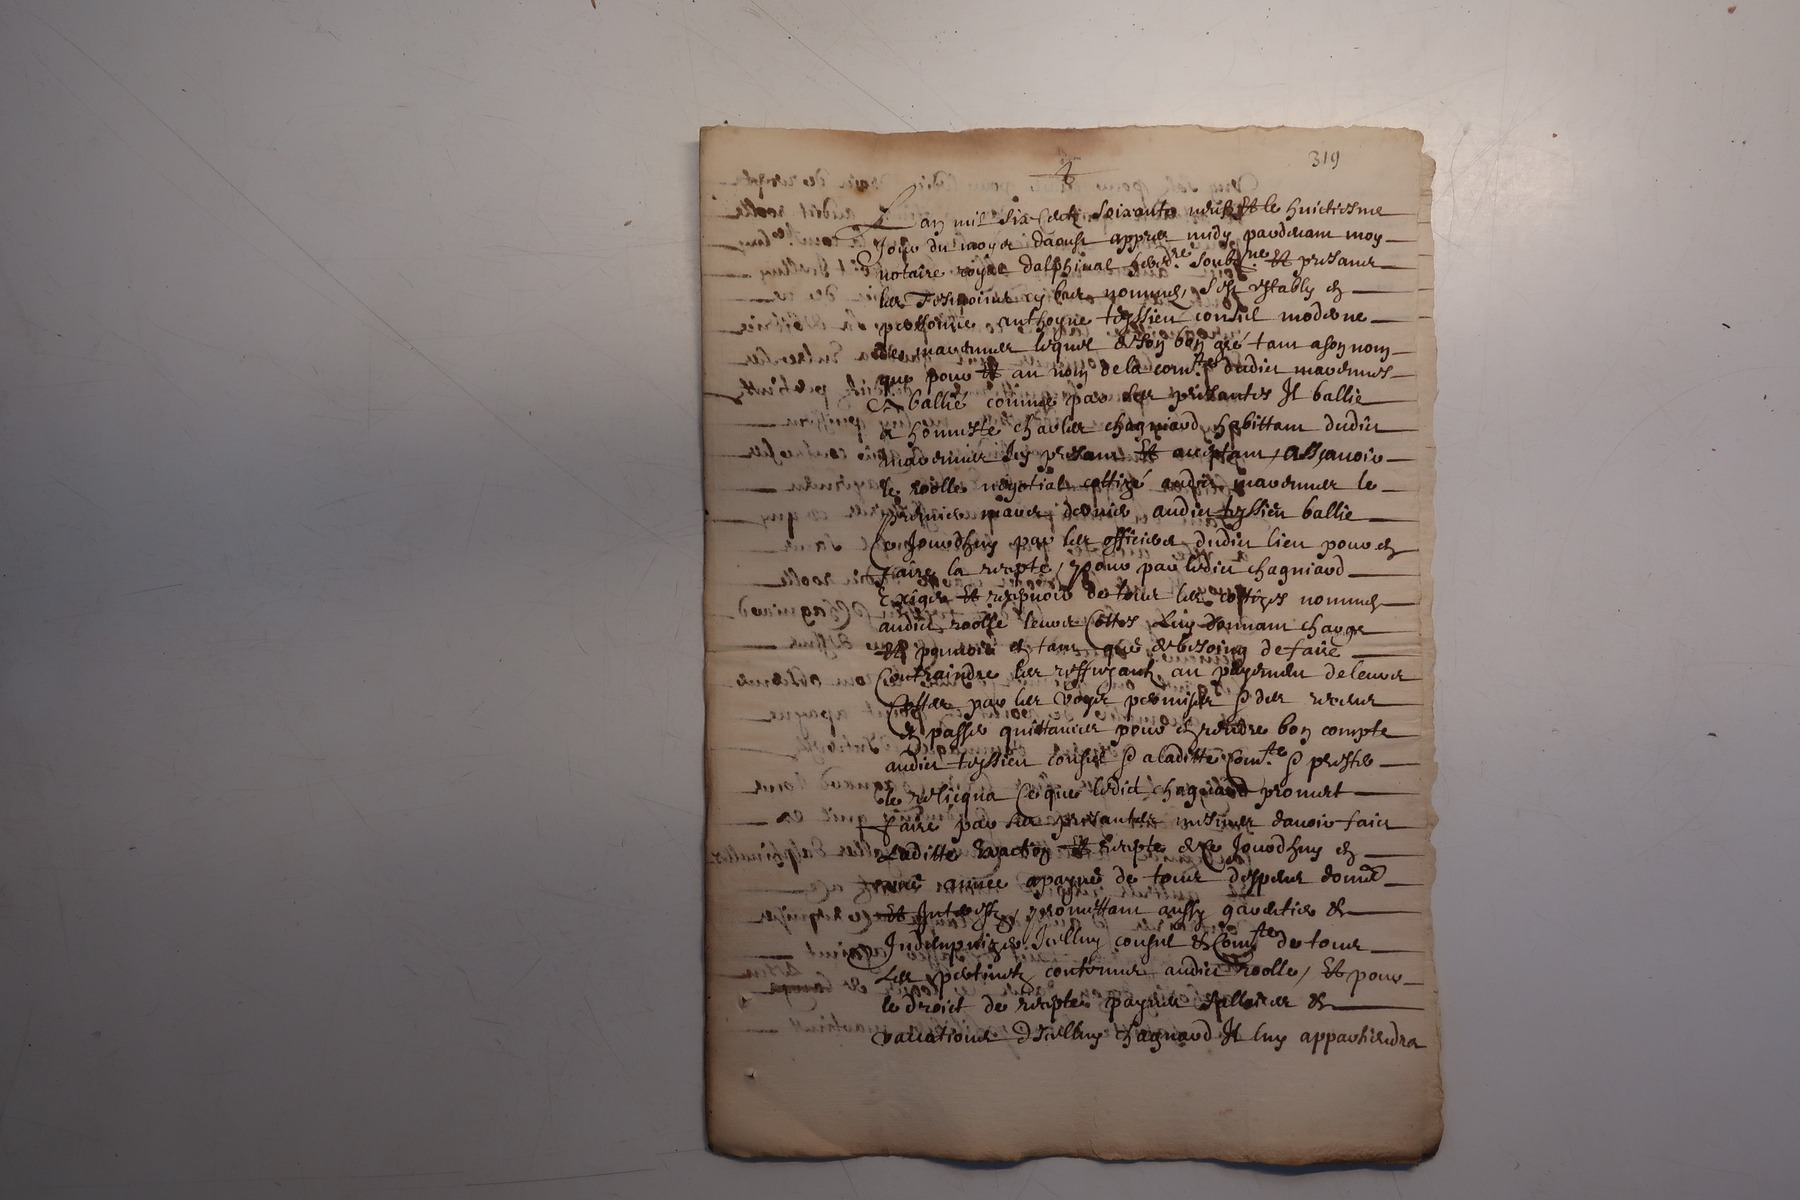 319
L an mil six centz soixante neuf et le huictiesme
Jour du moys daoust appres midy pardevant moy
notaire royal dalphinal heredre. soubzne et presantz
les tesmoins cy bas nommes, sest estably en
personne anthoyne teyssieu consul moderne
de mavennes lequel de son bon gré tant a son nom
que pour et au nom de la comte dudict mavennes
A ballié comme par ses presantes Il ballie
a honneste charles chagniard habittant dudict
mavennes Icy presant et acceptant, assavoir
le roolle negotial cottizé audict mavennes le
premier mars dernier audict teyssieu ballié
Ce Jourdhuy par les officiers dudict lieu pour en
faire la recepte, pour par ledict chagniard
Exiger et recepvoir de tous les cottizes nommes
audict roolle leurs Cottes Luy donnant charge
et pouvoir en tant que de besoing de faire
Contraindre les reffuzantz au payement de leurs
Cottes par les voyes permises & des receus
en passer quittances pour en rendre bon compte
audict teyssieu consul & a laditte Comte & prester
le relicqua Ce que ledict chagniard promect
faire par ses presantes mesmes davoir faict
Laditte Exaction et recepte de Ce Jourdhuy en
une année a payne de tous despens domes
et Interestz, promettant aussy garentir et
Indempnizer Icelluy consul et Comte de tous
Les contenus audict roolle, et pour
le droict de recepte paynes sallaires et
vacations dIcelluy Chagniard Il luy appartiendra